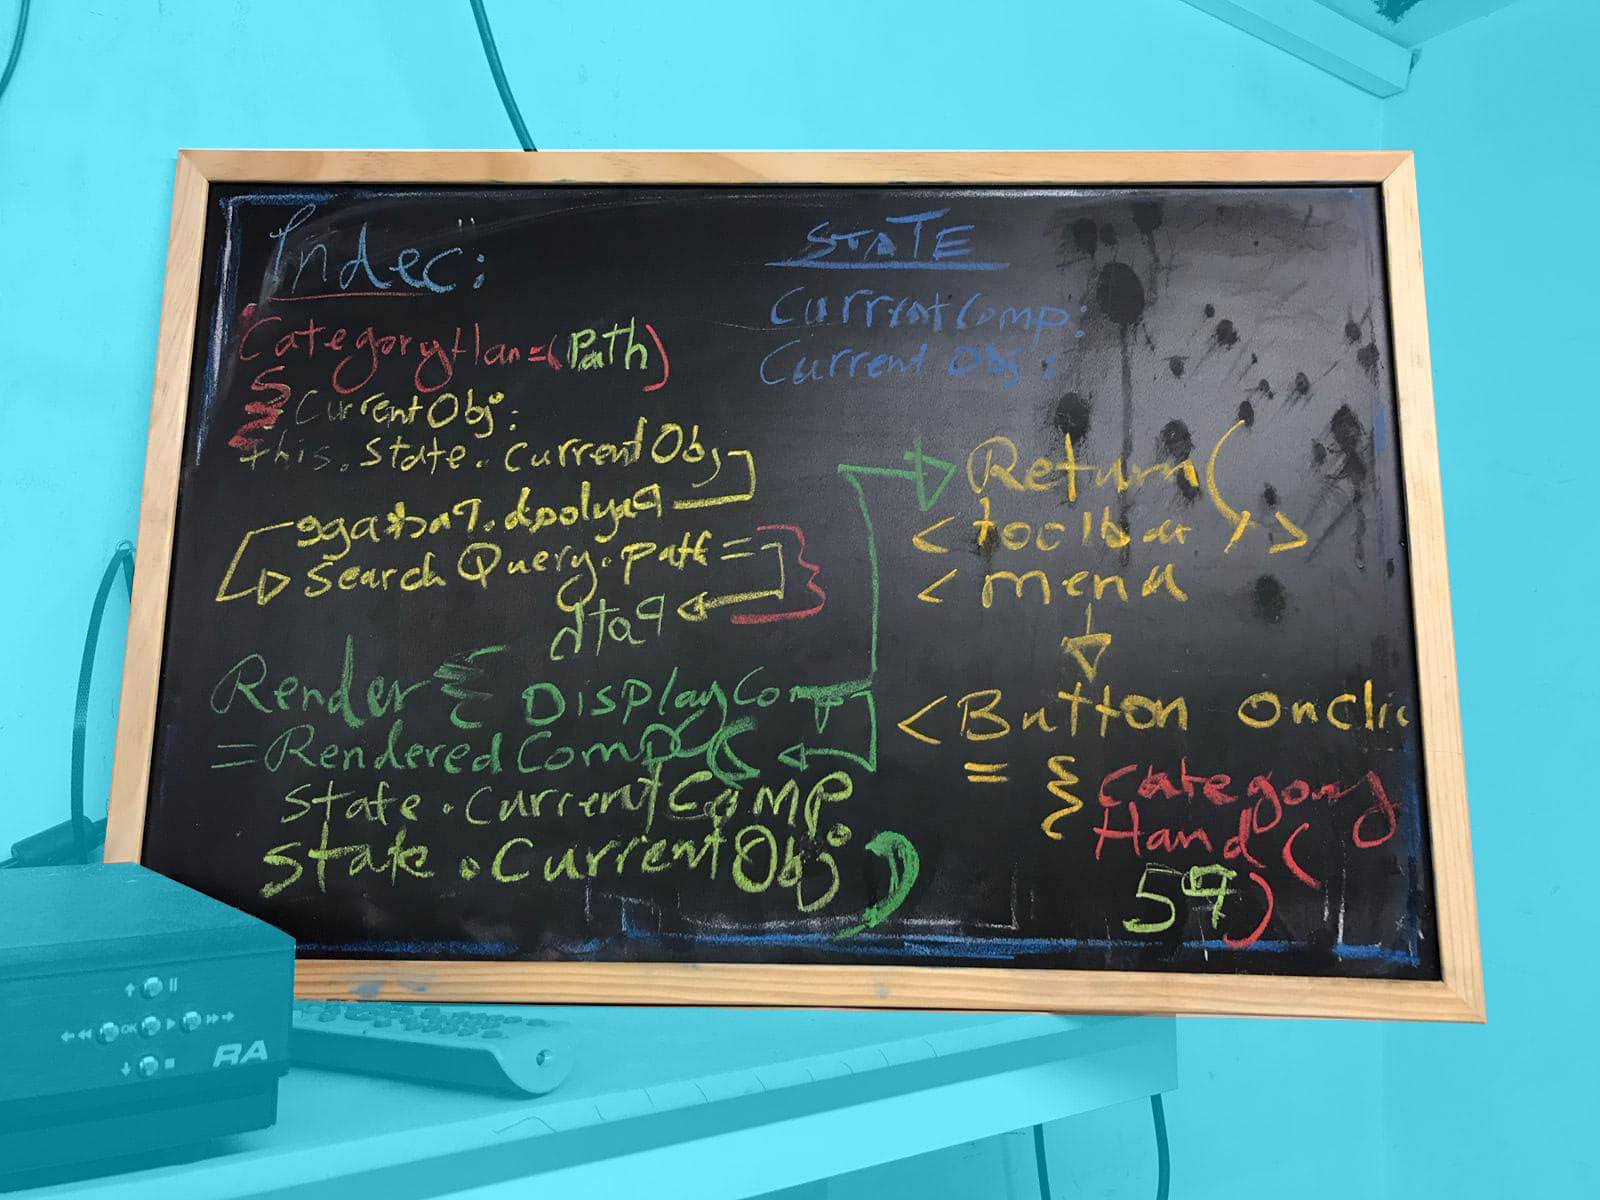 Index:
CategoryHan=(Path)
{ CurrentObj:
this.state.currentObj
SearchQuery.path =
Render { DisplayComp
= RenderedComp (
State.CurrentCOMP.
State.CurrentObj )
STATE
CurrentComp:
Current Obj:
Return (
< toolbar />
< menu
<Button onclic
= { Category
Hand (
RA
OK